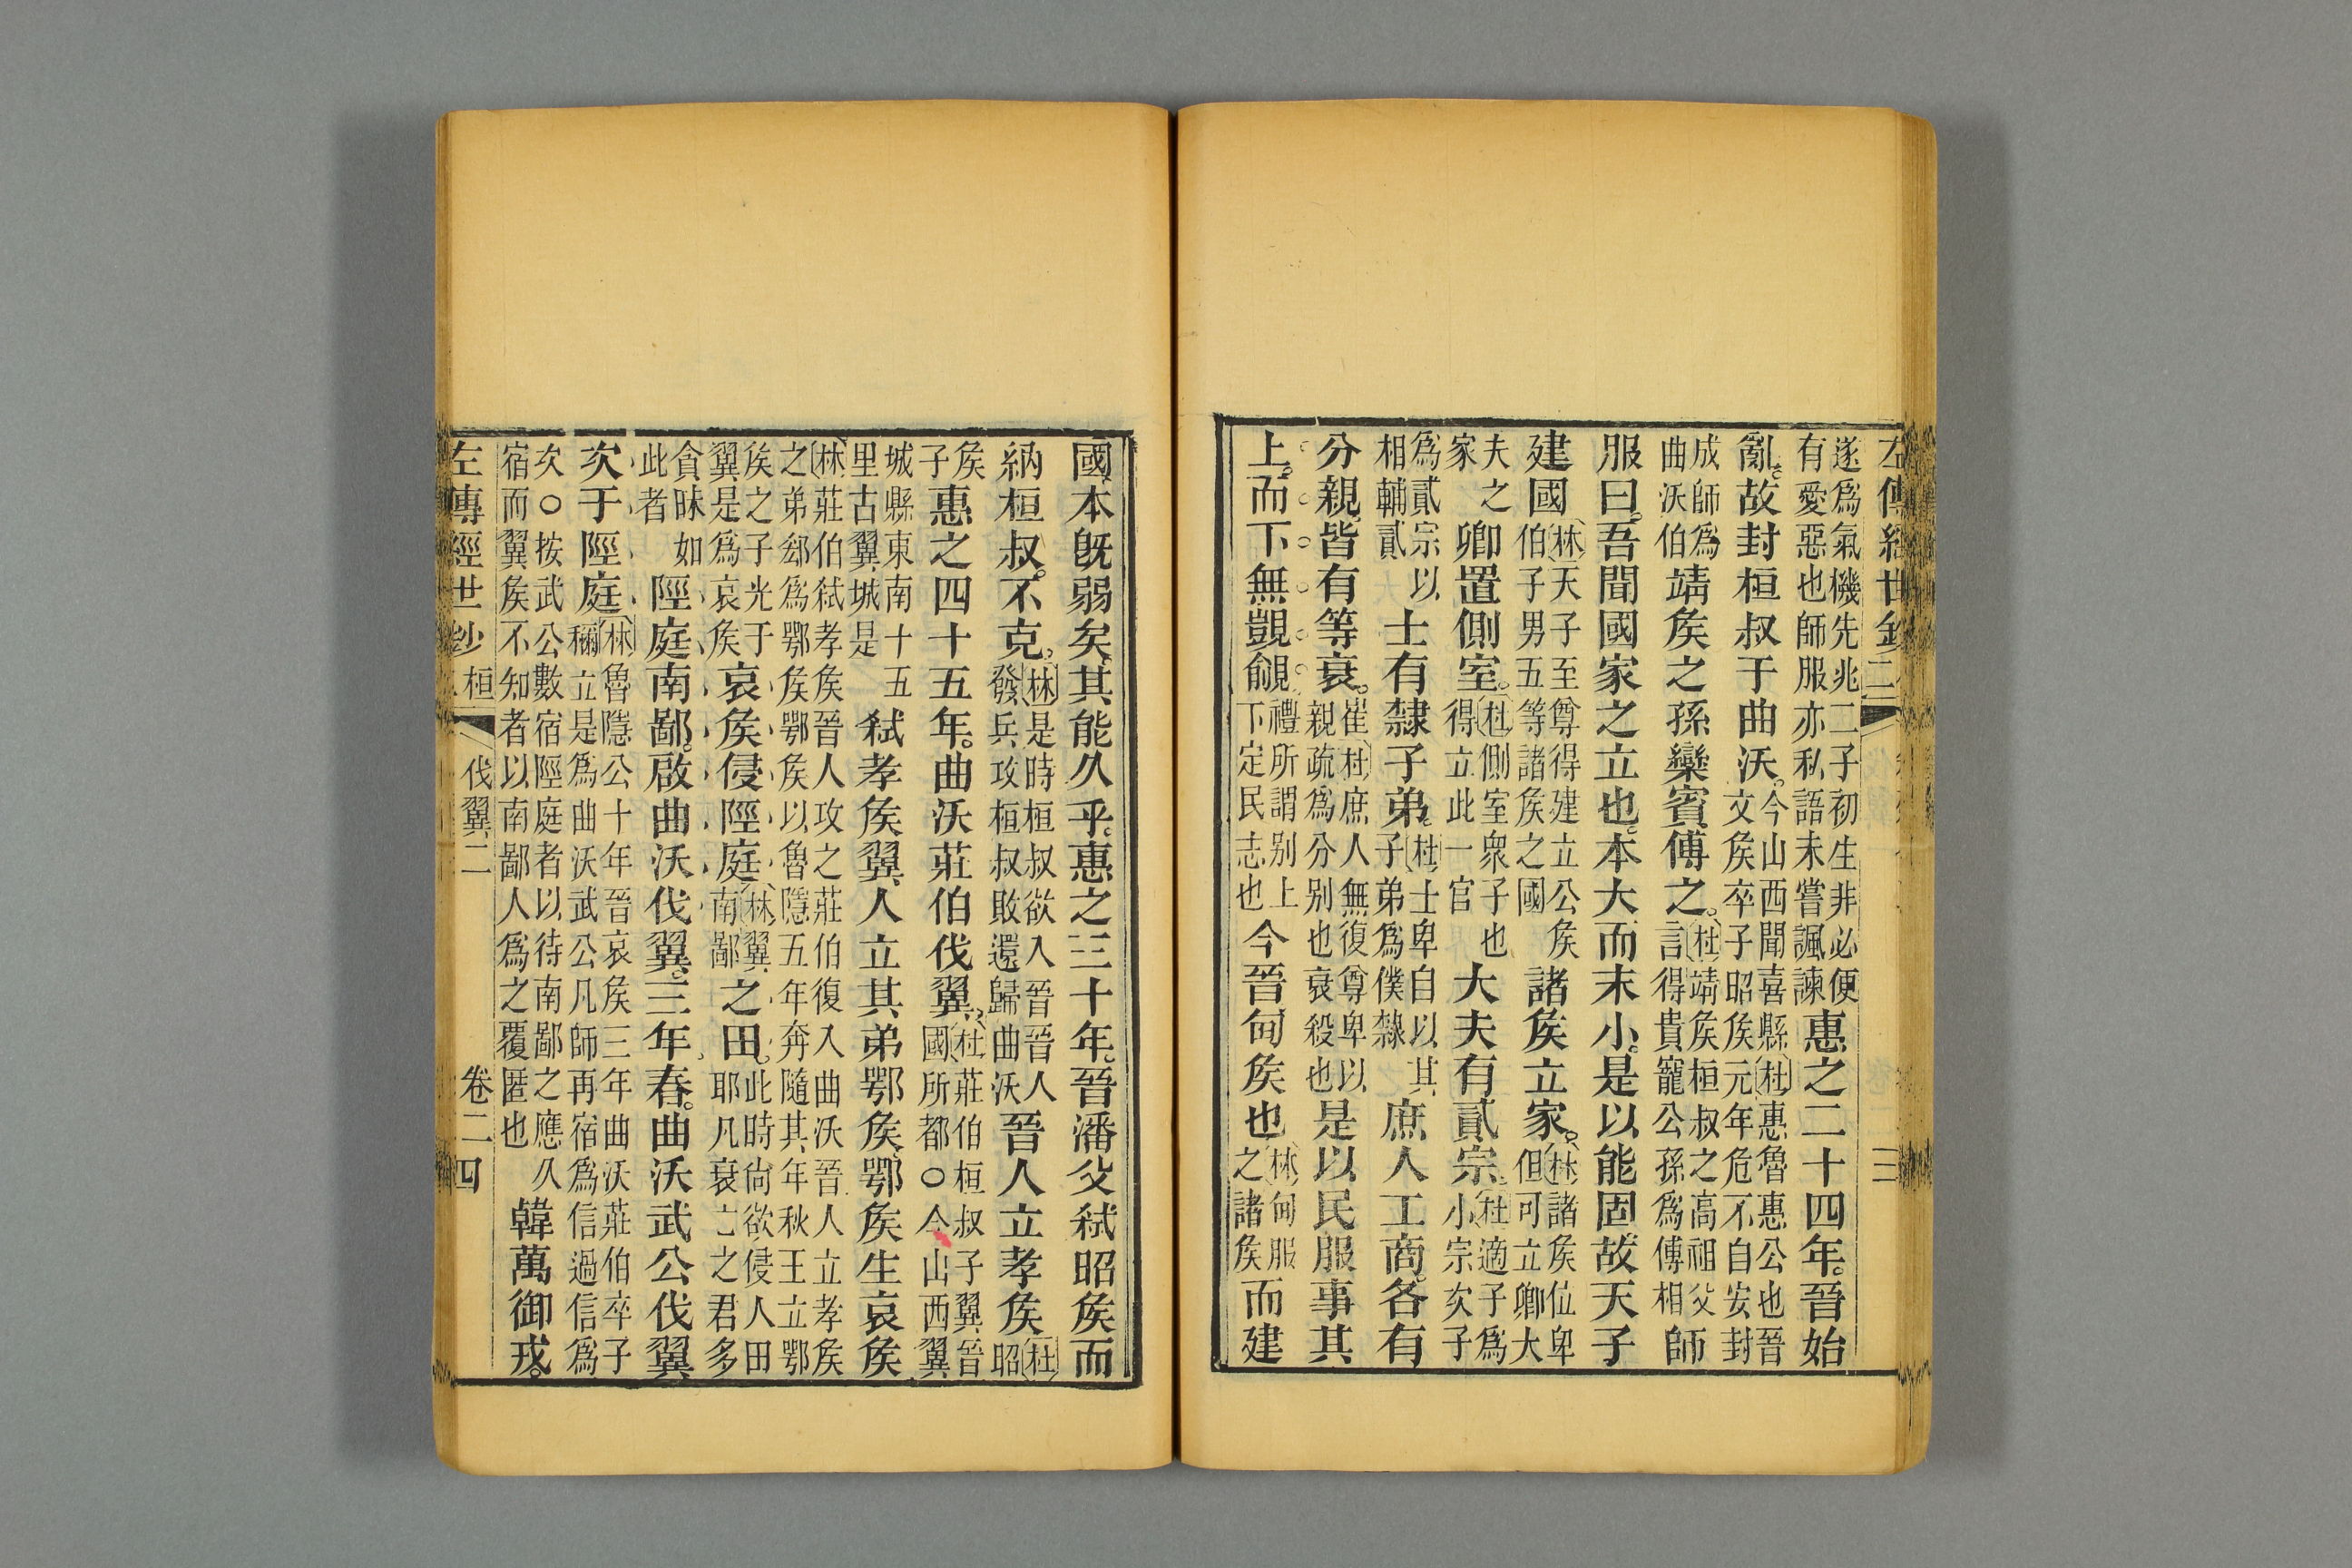 左傳經世鈔 二 三
遂爲氣機先兆二子初生非必便
有愛惡也師服亦私語未嘗諷諫惠之二十四年晉始
亂故封桓叔于曲沃今山西聞喜縣杜惠魯惠公也晉
文侯卒子昭侯元年危不自安封
成師爲
曲沃伯靖矦之孫欒賓傅之杜靖矦桓叔之高祖父
言得貴寵公孫爲傅相師
服曰吾聞國家之立也本大而末小是以能固故天子
建國林天子至尊得建立公矦
伯子男五等諸矦之國諸矦立家林諸矦位卑
但可立卿大
夫之
家卿置側室杜側室衆子也
得立此一官大夫有貳宗杜適子爲
小宗次子
爲貳宗以
相輔貳士有隸子弟杜士卑自以其
子弟爲僕隸庶人工商各有
分親皆有等衰崔杜庶人無復尊卑以
親疏爲分别也衰殺也是以民服事其
上而下無覬覦禮所謂别上
下定民志也今晉甸矦也林甸服
之諸矦而建
國本旣弱矣其能久乎惠之三十年晉潘父弑昭矦而
納桓叔不克林是時桓叔欲入晉晉人
發兵攻桓叔敗還歸曲沃晉人立孝矦杜
昭
矦
子惠之四十五年曲沃莊伯伐翼杜莊伯桓叔子翼晉
國所都〇今山西翼
城縣東南十五
里古翼城是弑孝矦翼人立其弟鄂矦鄂矦生哀矦
林莊伯弑孝矦晉人攻之莊伯復入曲沃晉人立孝矦
之弟郄爲鄂矦鄂矦以魯隱五年奔隨其年秋王立鄂
矦之子光于
翼是爲哀矦哀矦侵陘庭之田林翼
南鄙此時尙欲侵人田
耶凡衰亡之君多
貪昧如
此者陘庭南鄙啟曲沃伐翼三年春曲沃武公伐翼
次于陘庭林魯隱公十年晉哀矦三年曲沃莊伯卒子
稱立是爲曲沃武公凡師再宿爲信過信爲
次〇按武公數宿陘庭者以待南鄙之應久
宿而翼矦不知者以南鄙人爲之覆匿也韓萬御戎
左傳經世鈔 桓 伐翼二 卷二 四